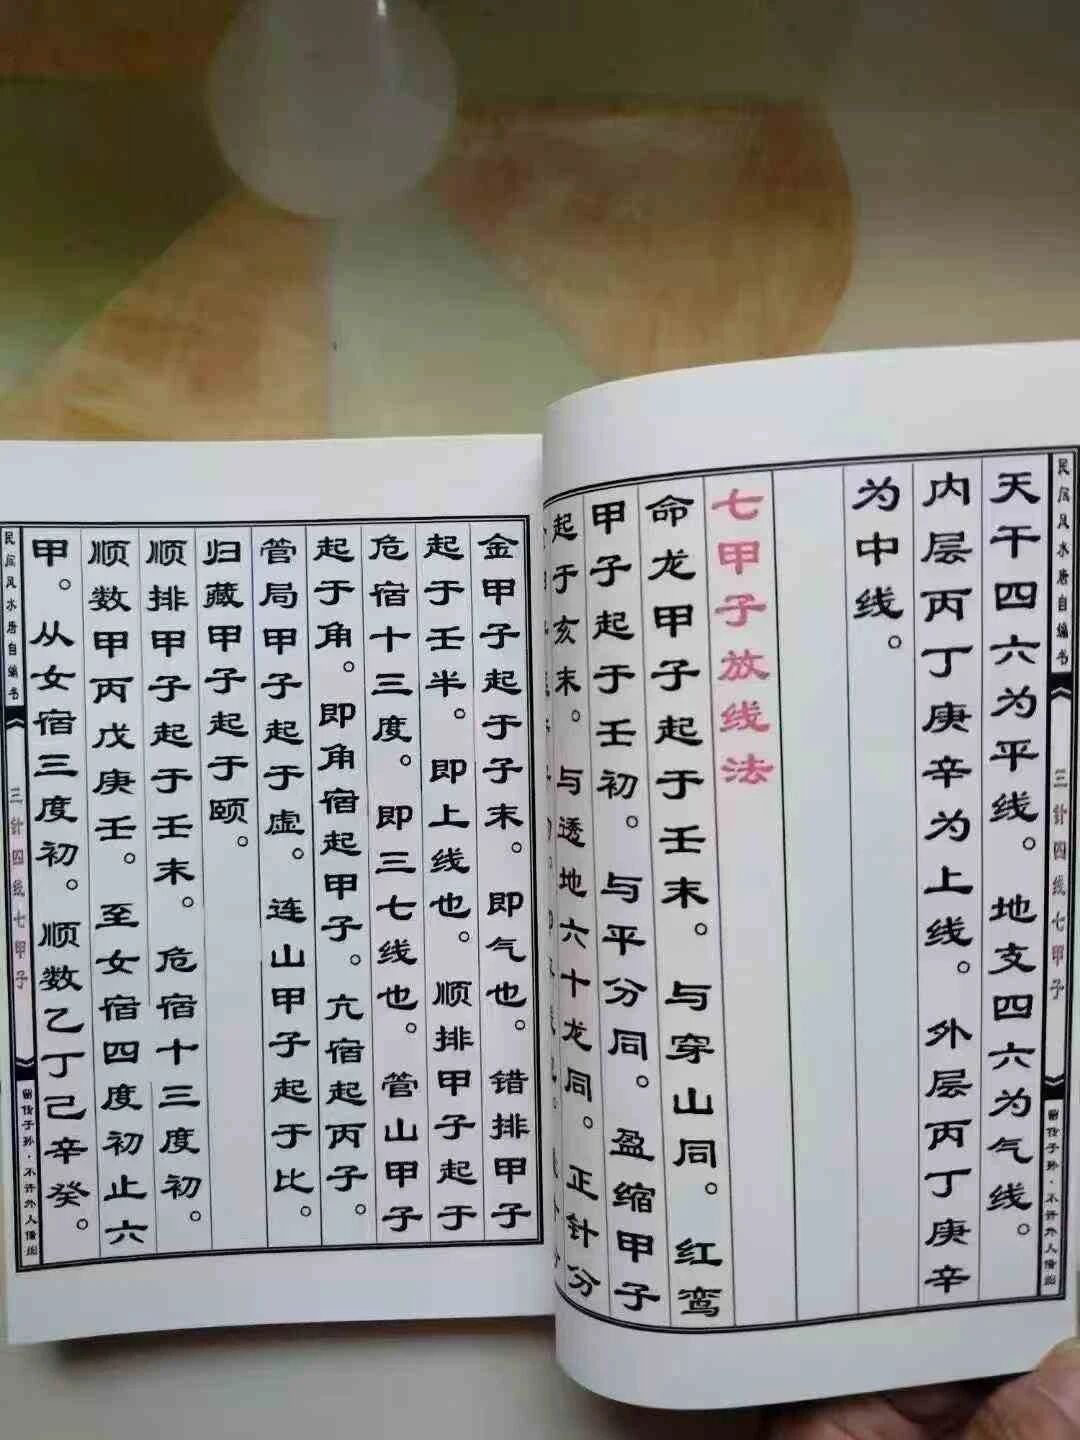 民间风水唐自编书
三针四线七甲子
天干四六为平线。地支四六为气线。
内层丙丁庚辛为上线。外层丙丁庚辛
为中线。
七甲子放线法
命龙甲子起于壬末。与穿山同。红鸾
甲子起于壬初。与平分同。盈缩甲子
起于亥末。与透地六十龙同。正针分
金甲子起于子末。即气也。错排甲子
起于壬半。即上线也。顺排甲子起于
危宿十三度。即三七线也。管山甲子
起于角。即角宿起甲子。亢宿起丙子。
管局甲子起于虚。连山甲子起于比。
归藏甲子起于颐。
顺排甲子起于壬末。危宿十三度初。
顺数甲丙戊庚壬。至女宿四度初止六
甲。从女宿三度初。顺数乙丁己辛癸。
民间风水唐自编书
三针四线七甲子